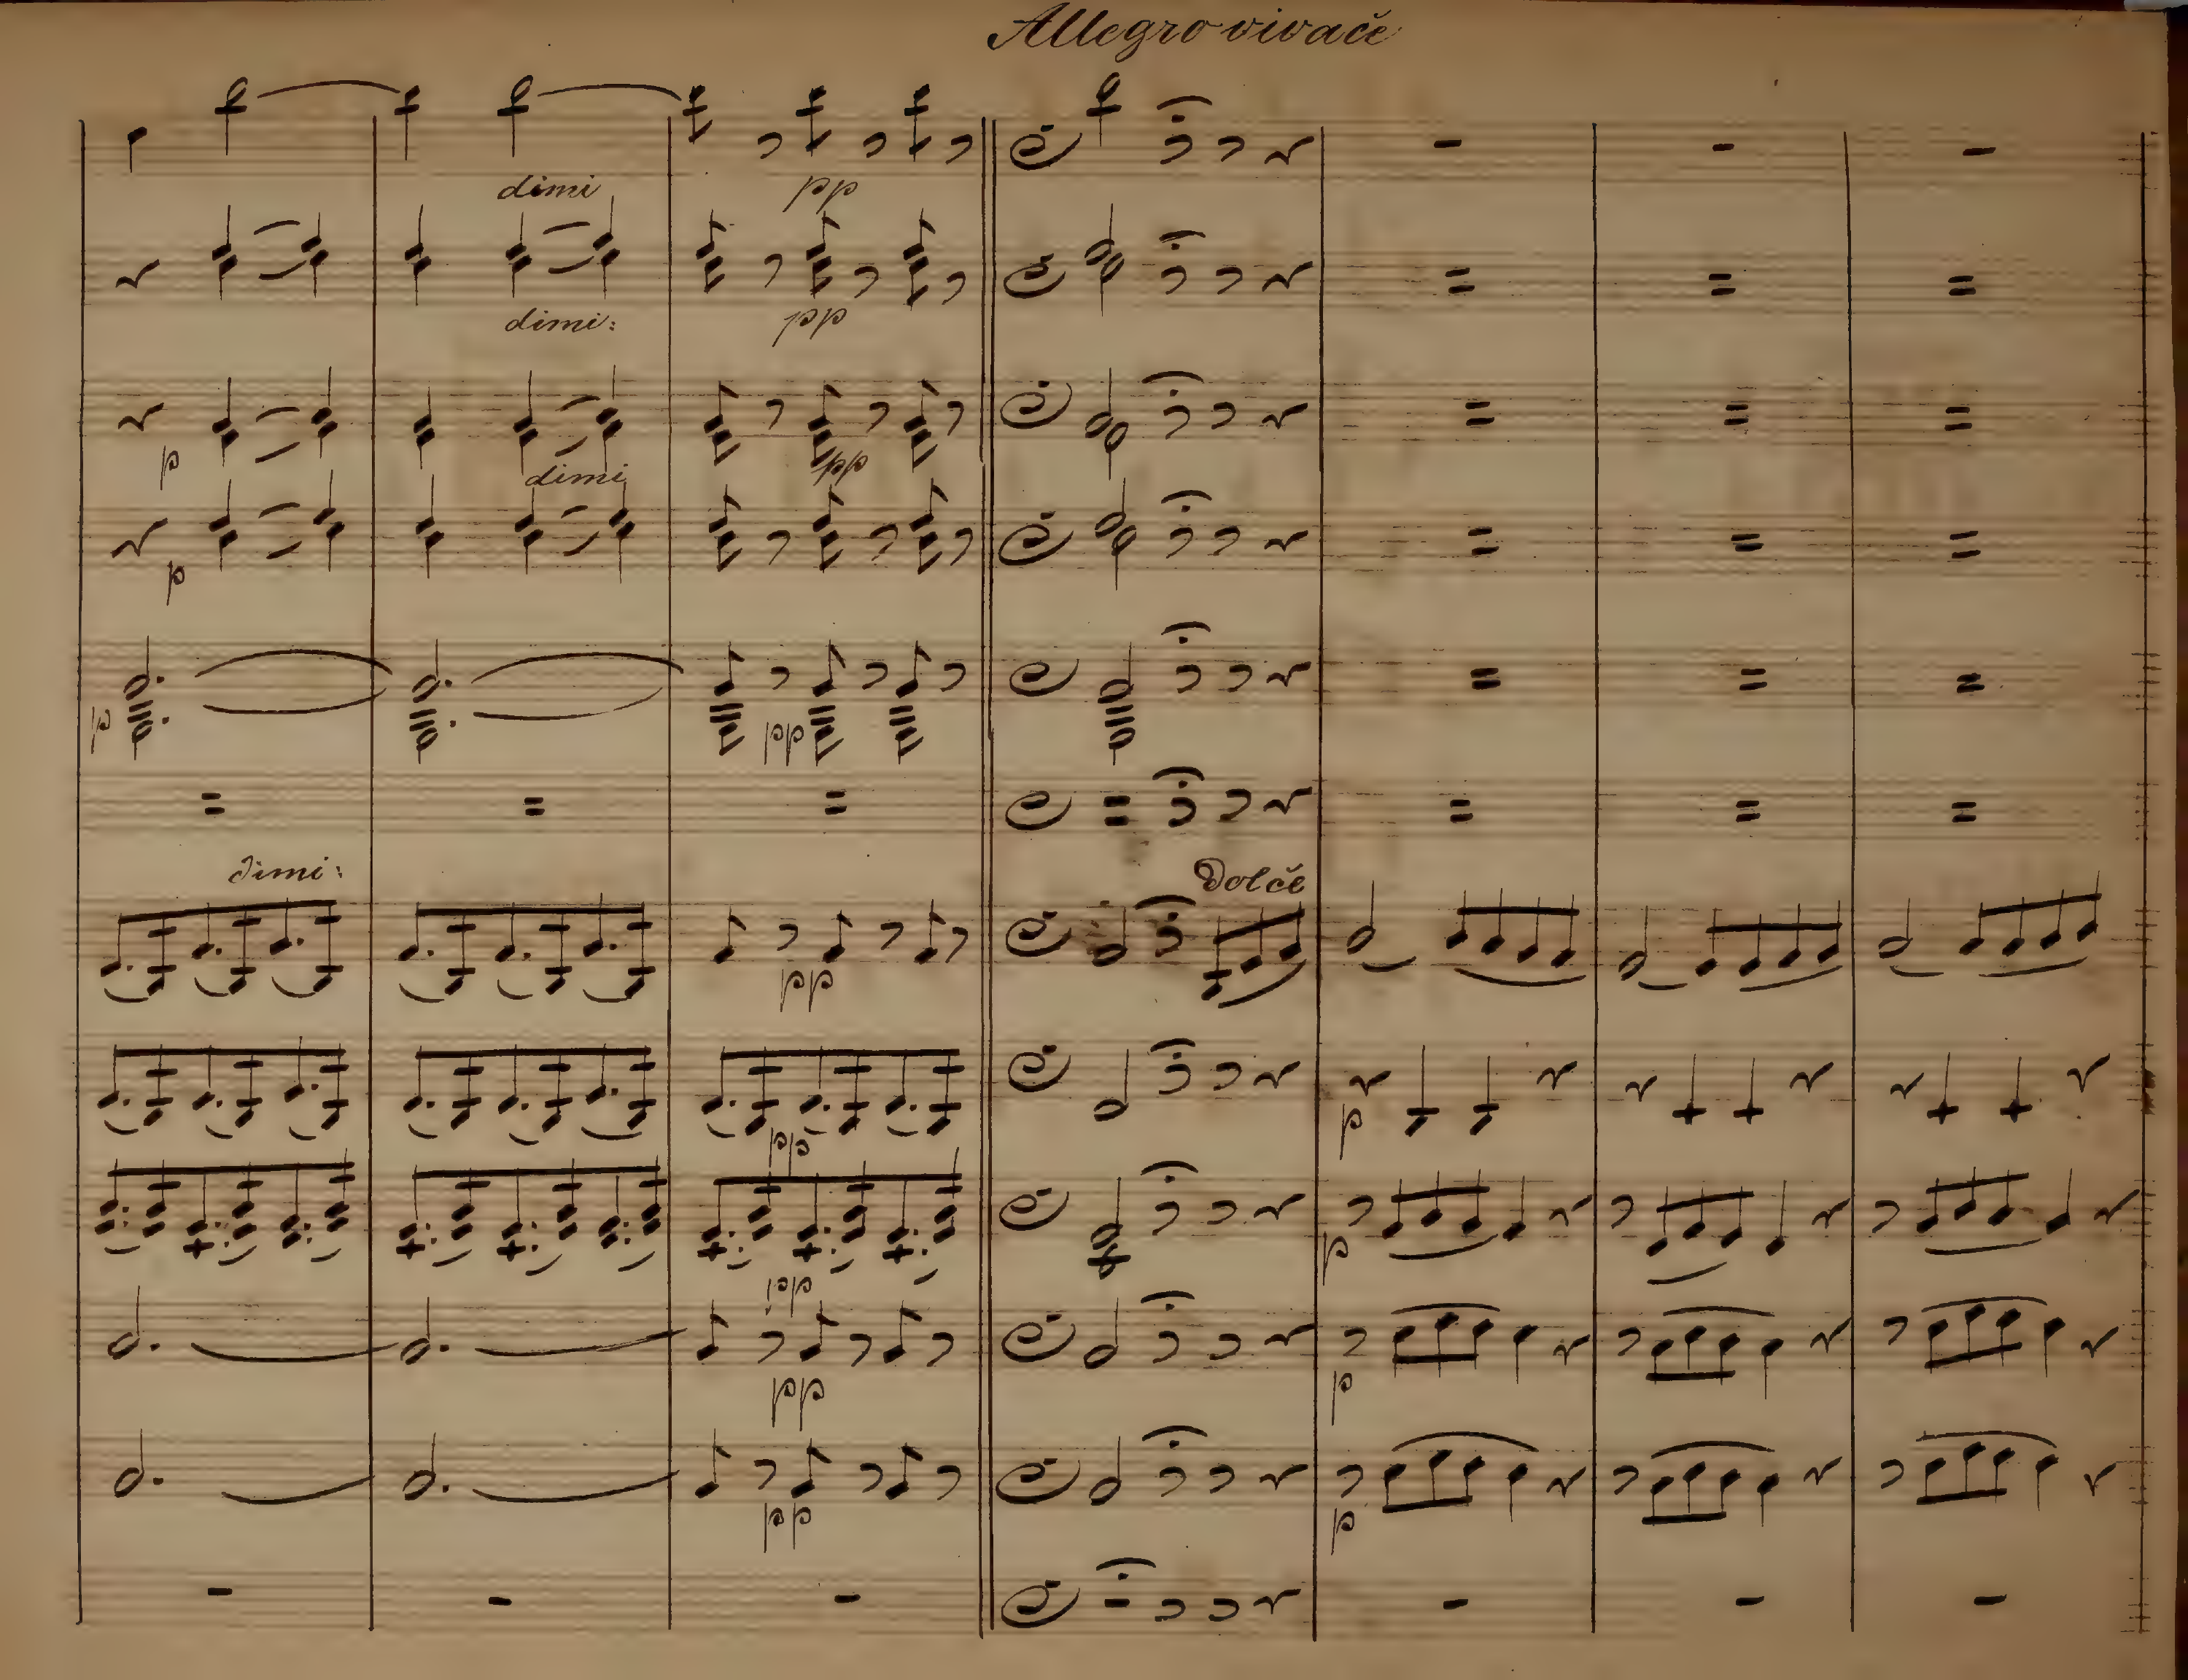 Allegro vivačě
dimi pp
dimi: pp
p dimi pp
p
p pp
dimi: Dolčě
pp
pp p
pp p
pp p
pp p